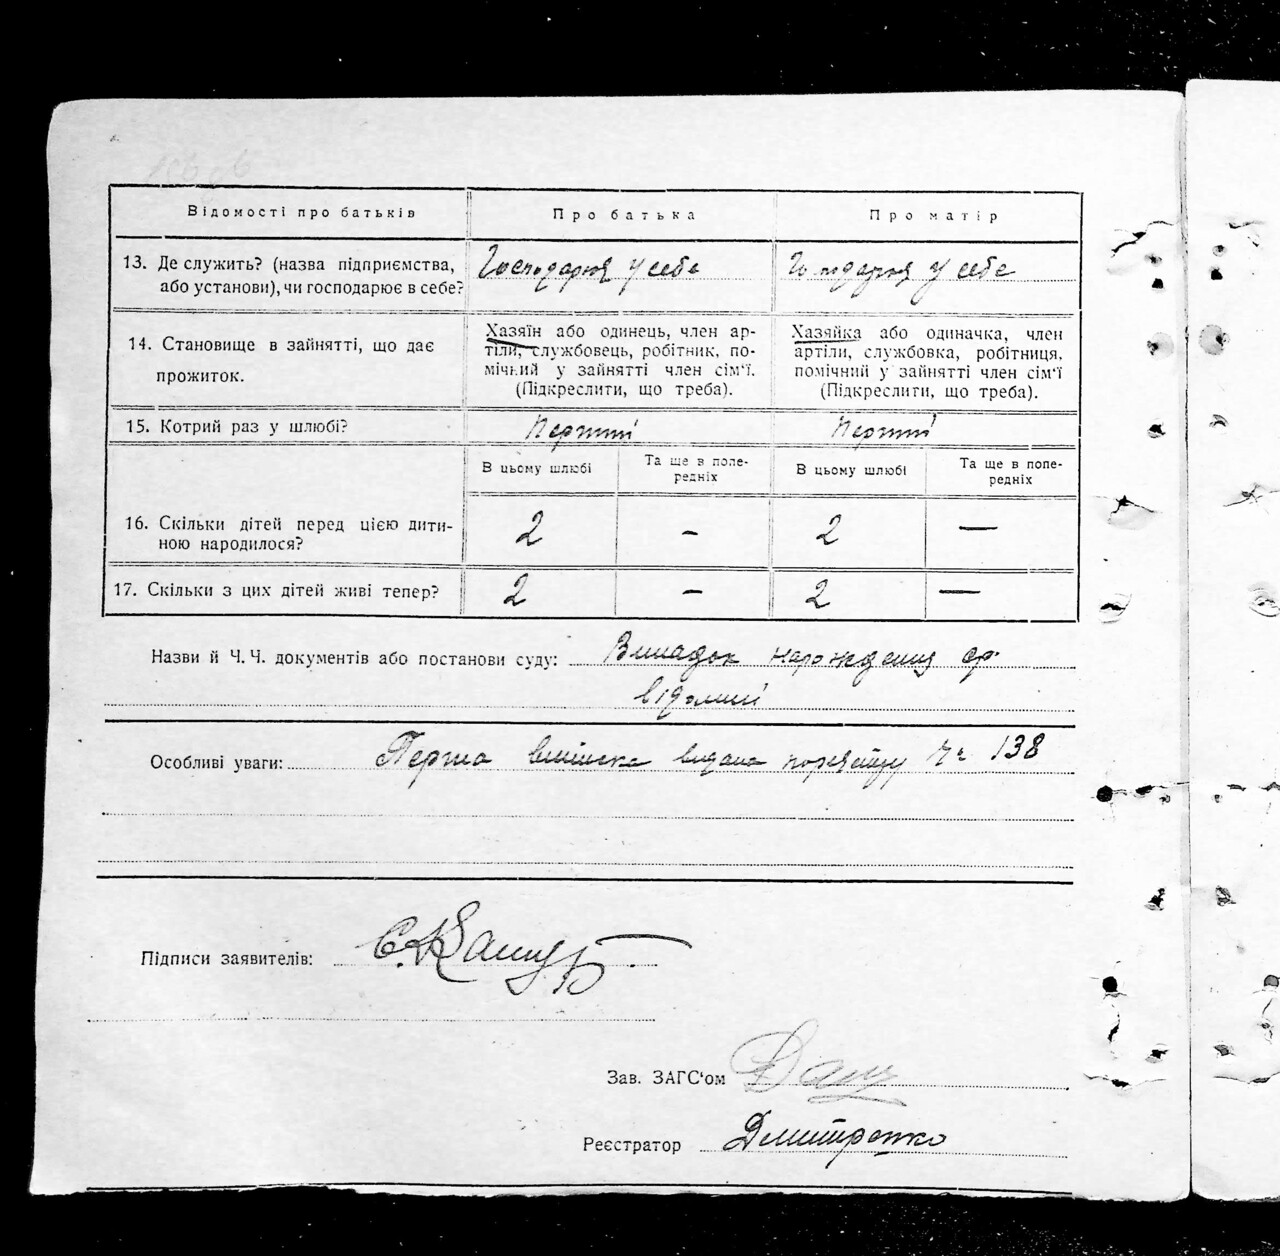 Відомості про батьків Про батька Про матір
13. Де служить? (назва підприємства, або установи), чи господарює в себе? Господарює у себе Господарює у себе
14. Становище в зайнятті, що дає прожиток.
Хазяїн або одинець, член ар-
тіли, службовець, робітник, по-
мічний у зайнятті член сім'ї.
(Підкреслити, що треба).
Хазяйка або одиначка, член
артіли, службовка, робітниця,
помічний у зайнятті член сім'ї
(Підкреслити, що треба).
15. Котрий раз у шлюбі? Перший Перший
В цьому шлюбі Та ще в попе-редніх В цьому шлюбі Та ще в попе-редніх
16. Скільки дітей перед цією дити-
ною народилося? 2 - 2 —
17. Скільки з цих дітей живі тепер? 2 - 2 —
Назви й Ч. Ч. документів або постанови суду: Випадок народження
відомий
Особливі уваги: Перша виписка видана 138
Підписи заявителів:
Зав. ЗАГС'ом
Реєстратор Дмитренко